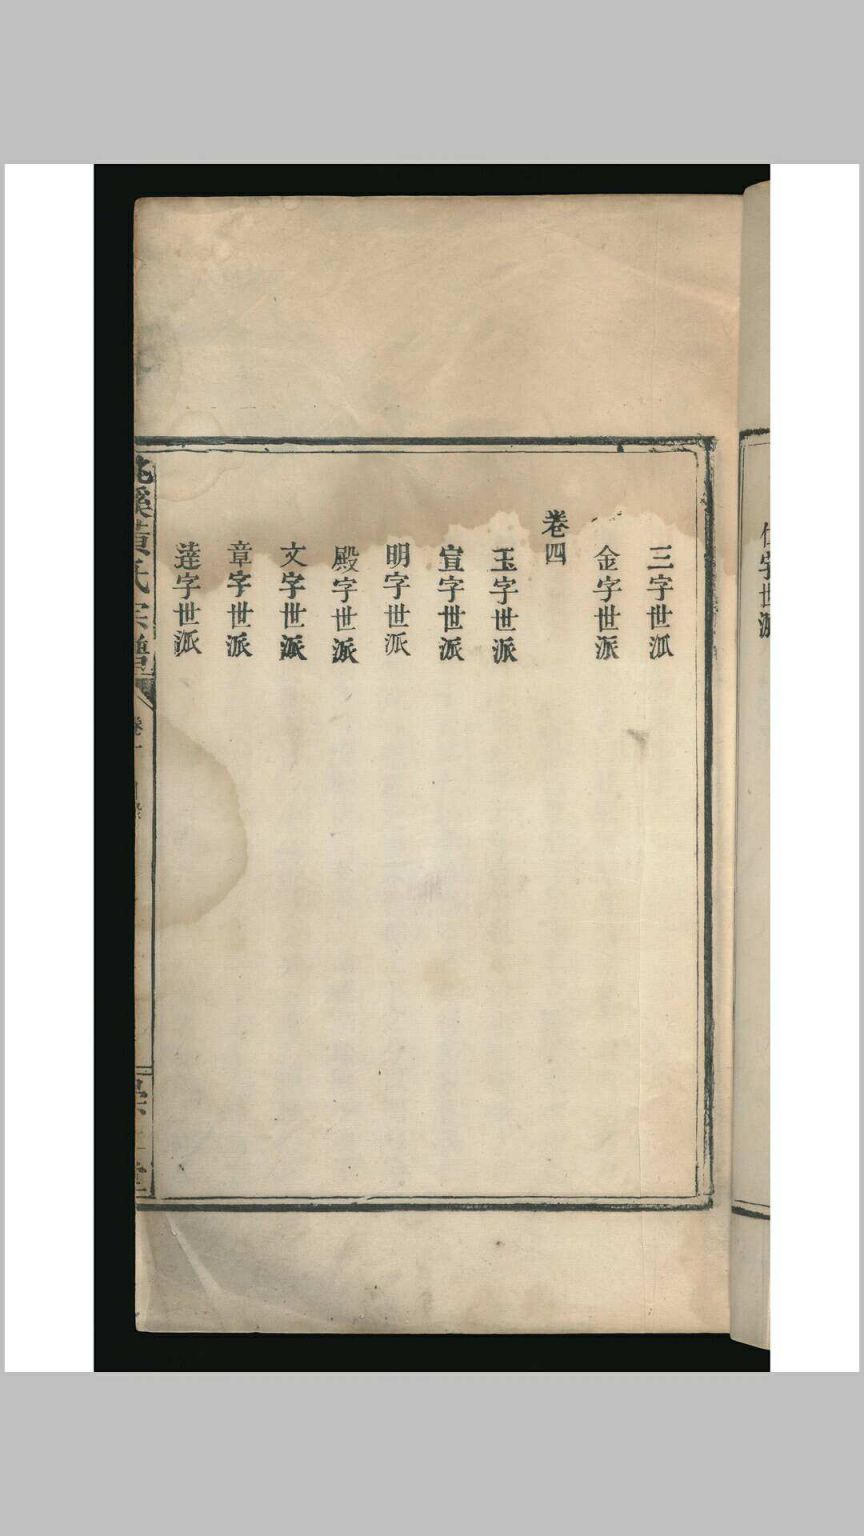 三字世派
金字世派
卷四
玉字世派
宣字世派
明字世派
殿字世派
文字世派
章字世派
逹字世派
溪黃氏宗譜
卷一
字世派